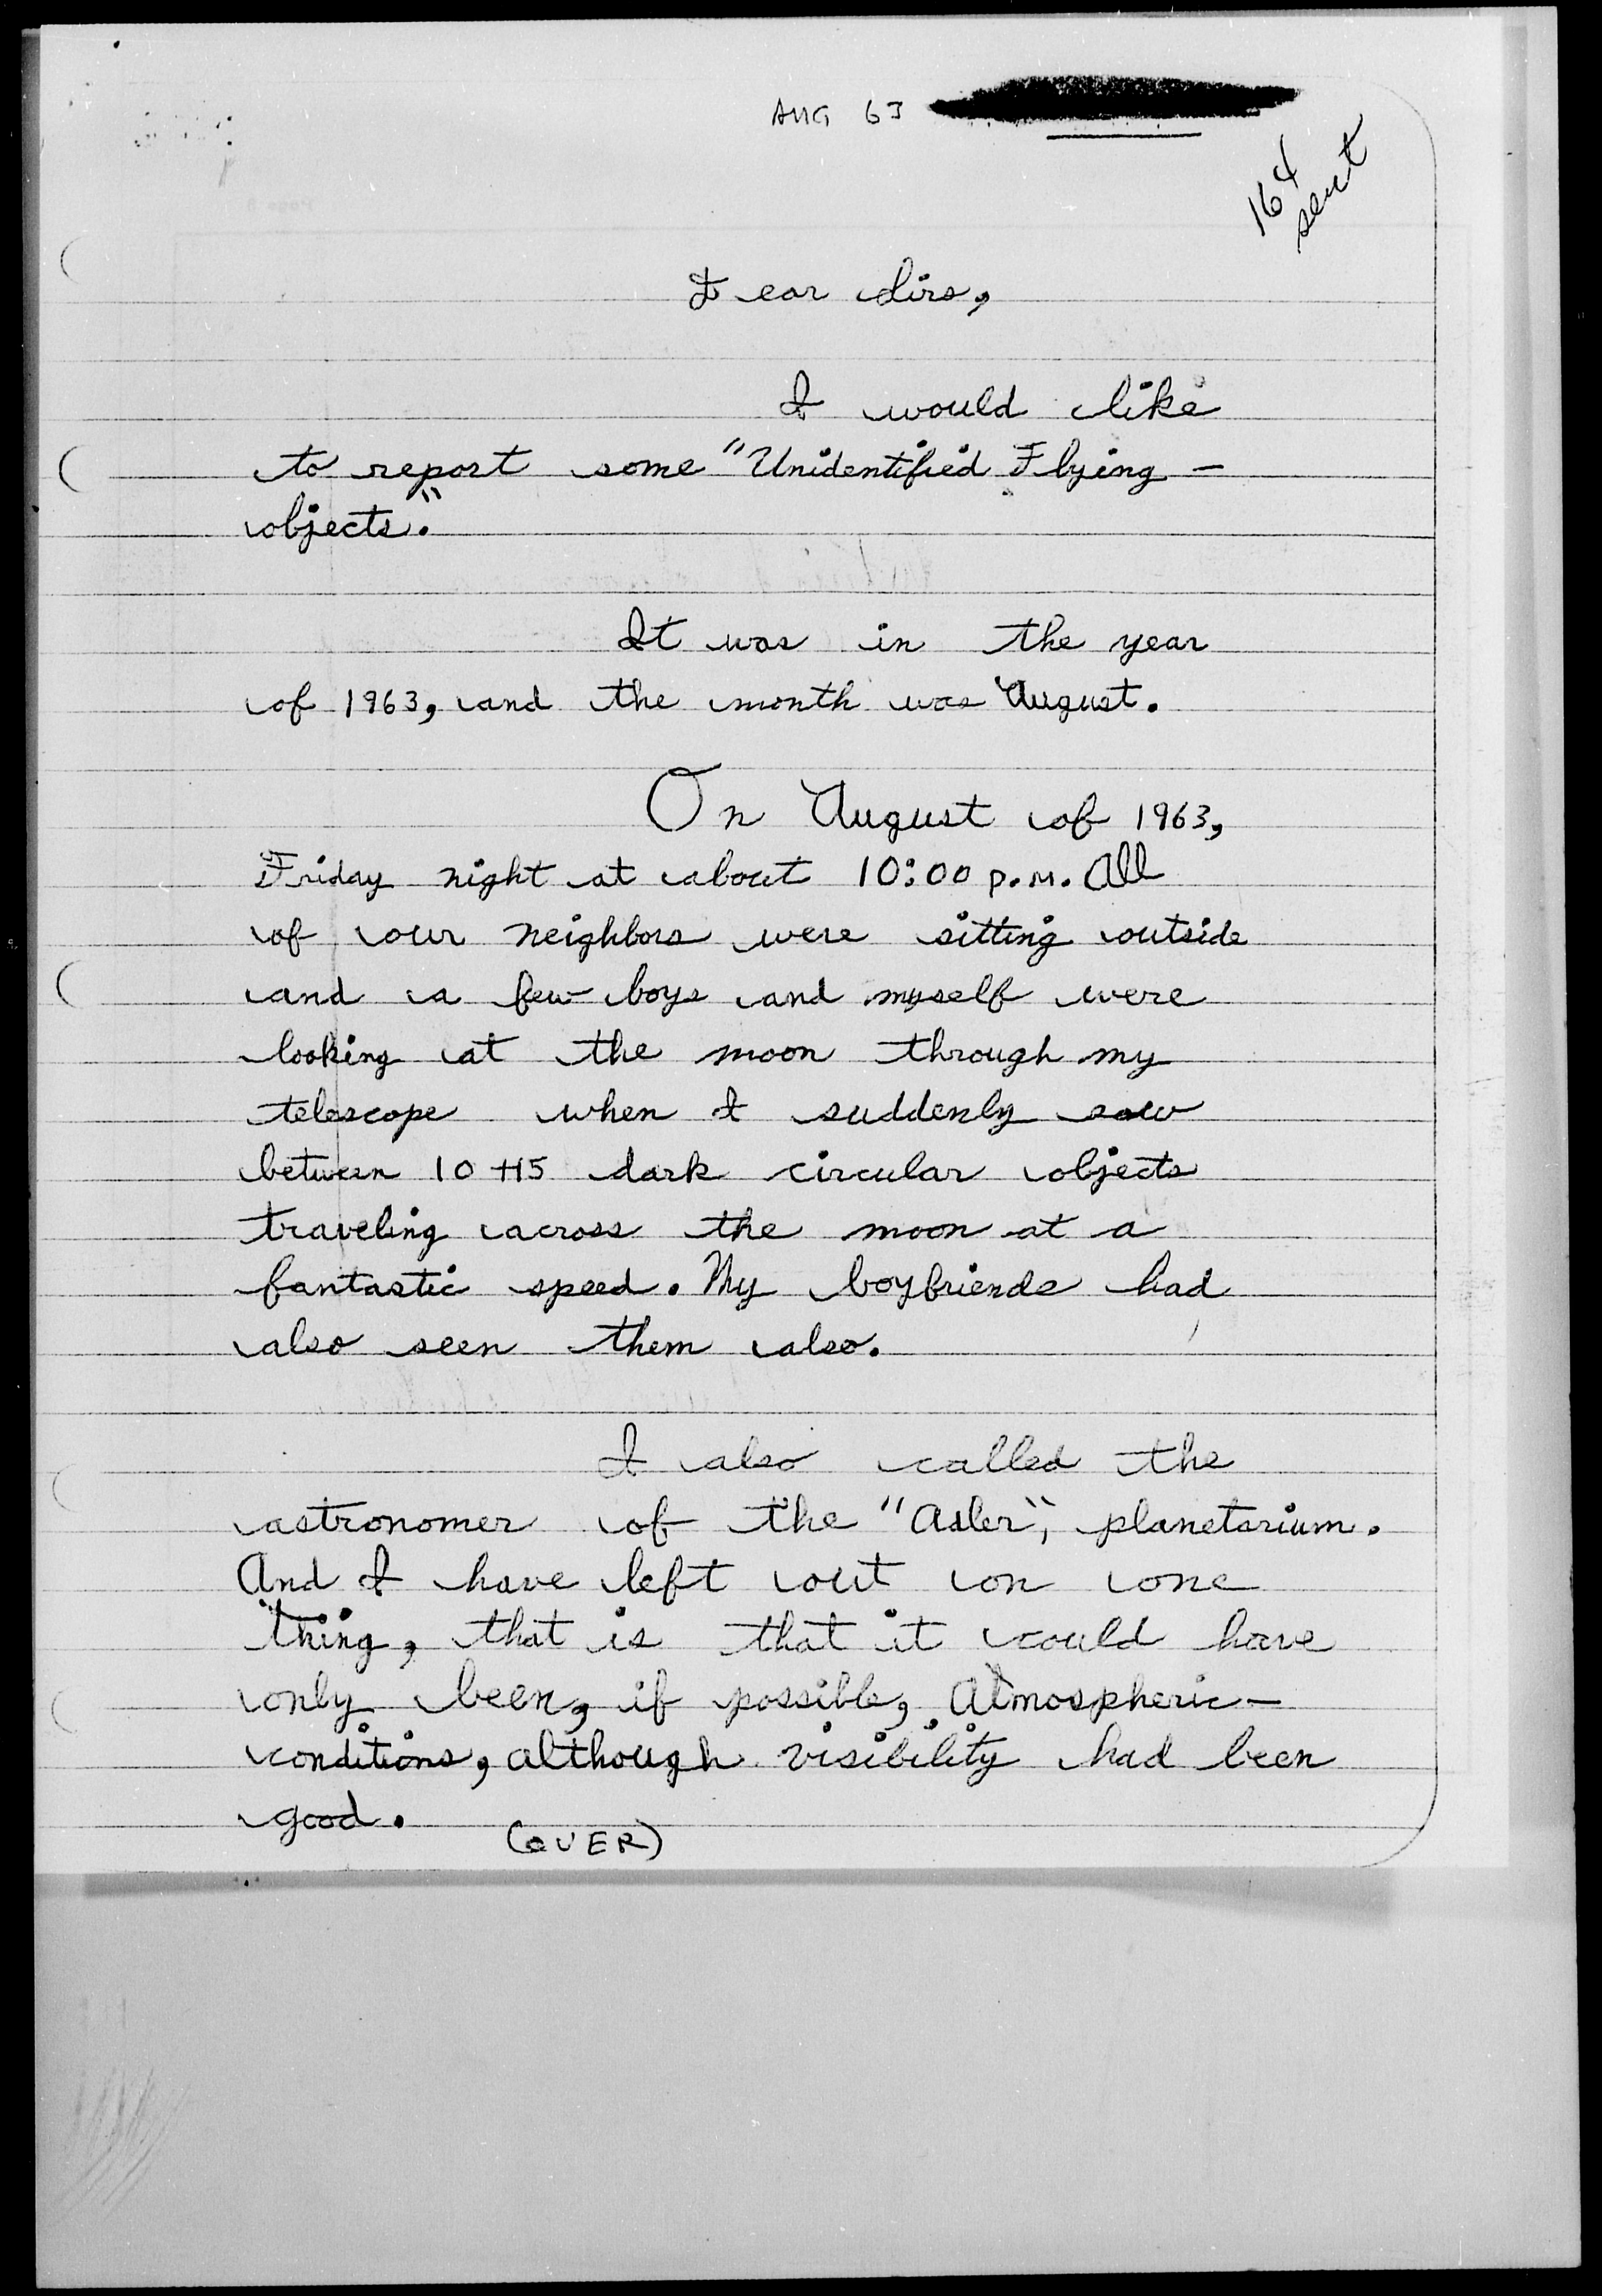 AUG 63
164
sent
Dear Sirs,
I would like
to report some "Unidentified Flying -
objects."
It was in the year
of 1963, and the month was August.
On August of 1963,
Friday night at about 10:00 P.M. All
of our neighbors were sitting outside
and a few boys and myself were
looking at the moon through my
telescope when I suddenly saw
between 10 +15 dark circular objects
traveling across the moon at a
fantastic speed. My boyfriends had
also seen them also.
I also called the
astronomer of the "Adler", planetarium.
And I have left out on one
thing, that is that it could have
only been, if possible, Atmospheric -
conditions, although visibility had been
good.
(OVER)